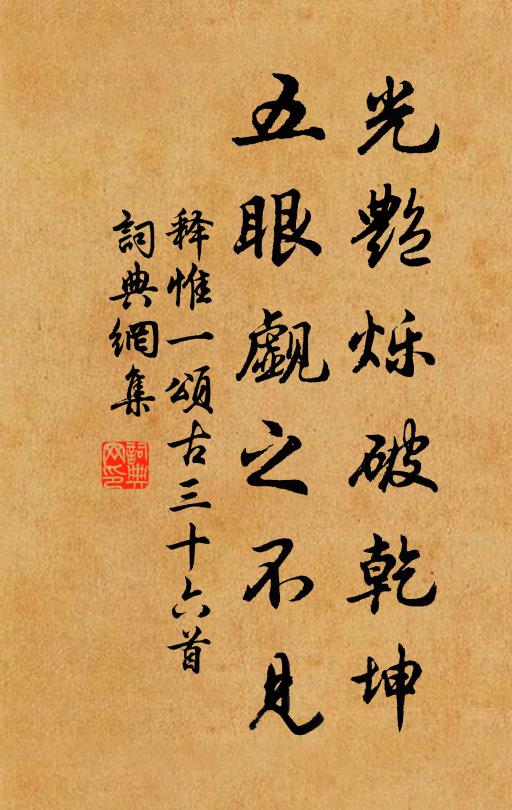 光艷烁破乾坤
五眼觑之不見
释惟一頌古三十六首
詞典網集
詞典网印